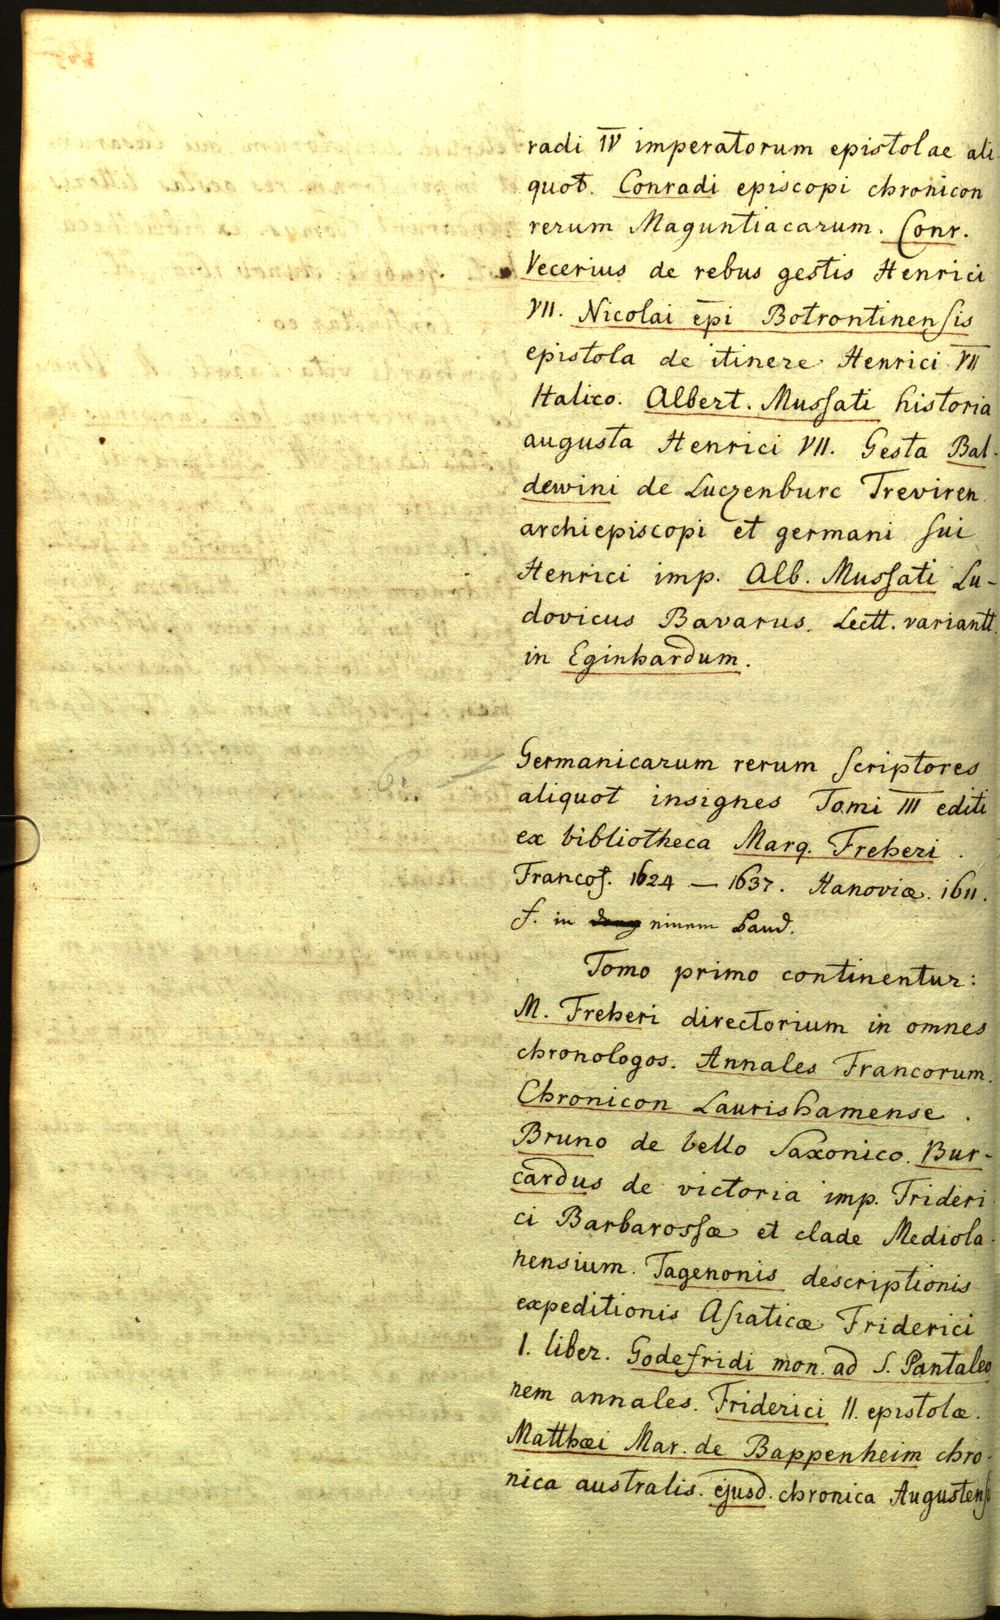 radi IV imperatorum epistolae ali
quot. Conradi episcopi chronicon
rerum Maguntiacarum. Conr.
Vecerius de rebus gestis Henrici
VII. Nicolai epi Botrontinensis
epistola de itinere Henrici VII
Italico. Albert. Mussati historia
augusta Henrici VII. Gesta Bal-
dewini de Luczenburc Treviren
archiepiscopi et germani sui
Henrici imp. Alb. Mussati Lu-
dovicus Bavarus. Lectt. variantt.
in Eginhardum.
Germanicarum rerum scriptores
aliquot insignes Tomi III editi
ex bibliotheca Marq. Freheri.
Francof. 1624 — 1637. Hanoviæ. 1611.
f. in einem Band.
Tomo primo continentur:
M. Freheri directorium in omnes
chronologos. Annales Francorum.
Chronicon Laurishamense.
Bruno de bello Saxonico. Bur-
cardus de victoria imp. Frideri
ci Barbarossæ et clade Mediola-
nensium. Tagenonis descriptionis
expeditionis Asiaticæ Friderici
I. liber. Godefridi mon. ad S. Pantaleo
nem annales. Friderici II. epistolæ.
Matthæi Mar. de Bappenheim chro-
nica australis. ejusd. chronica Augustensi